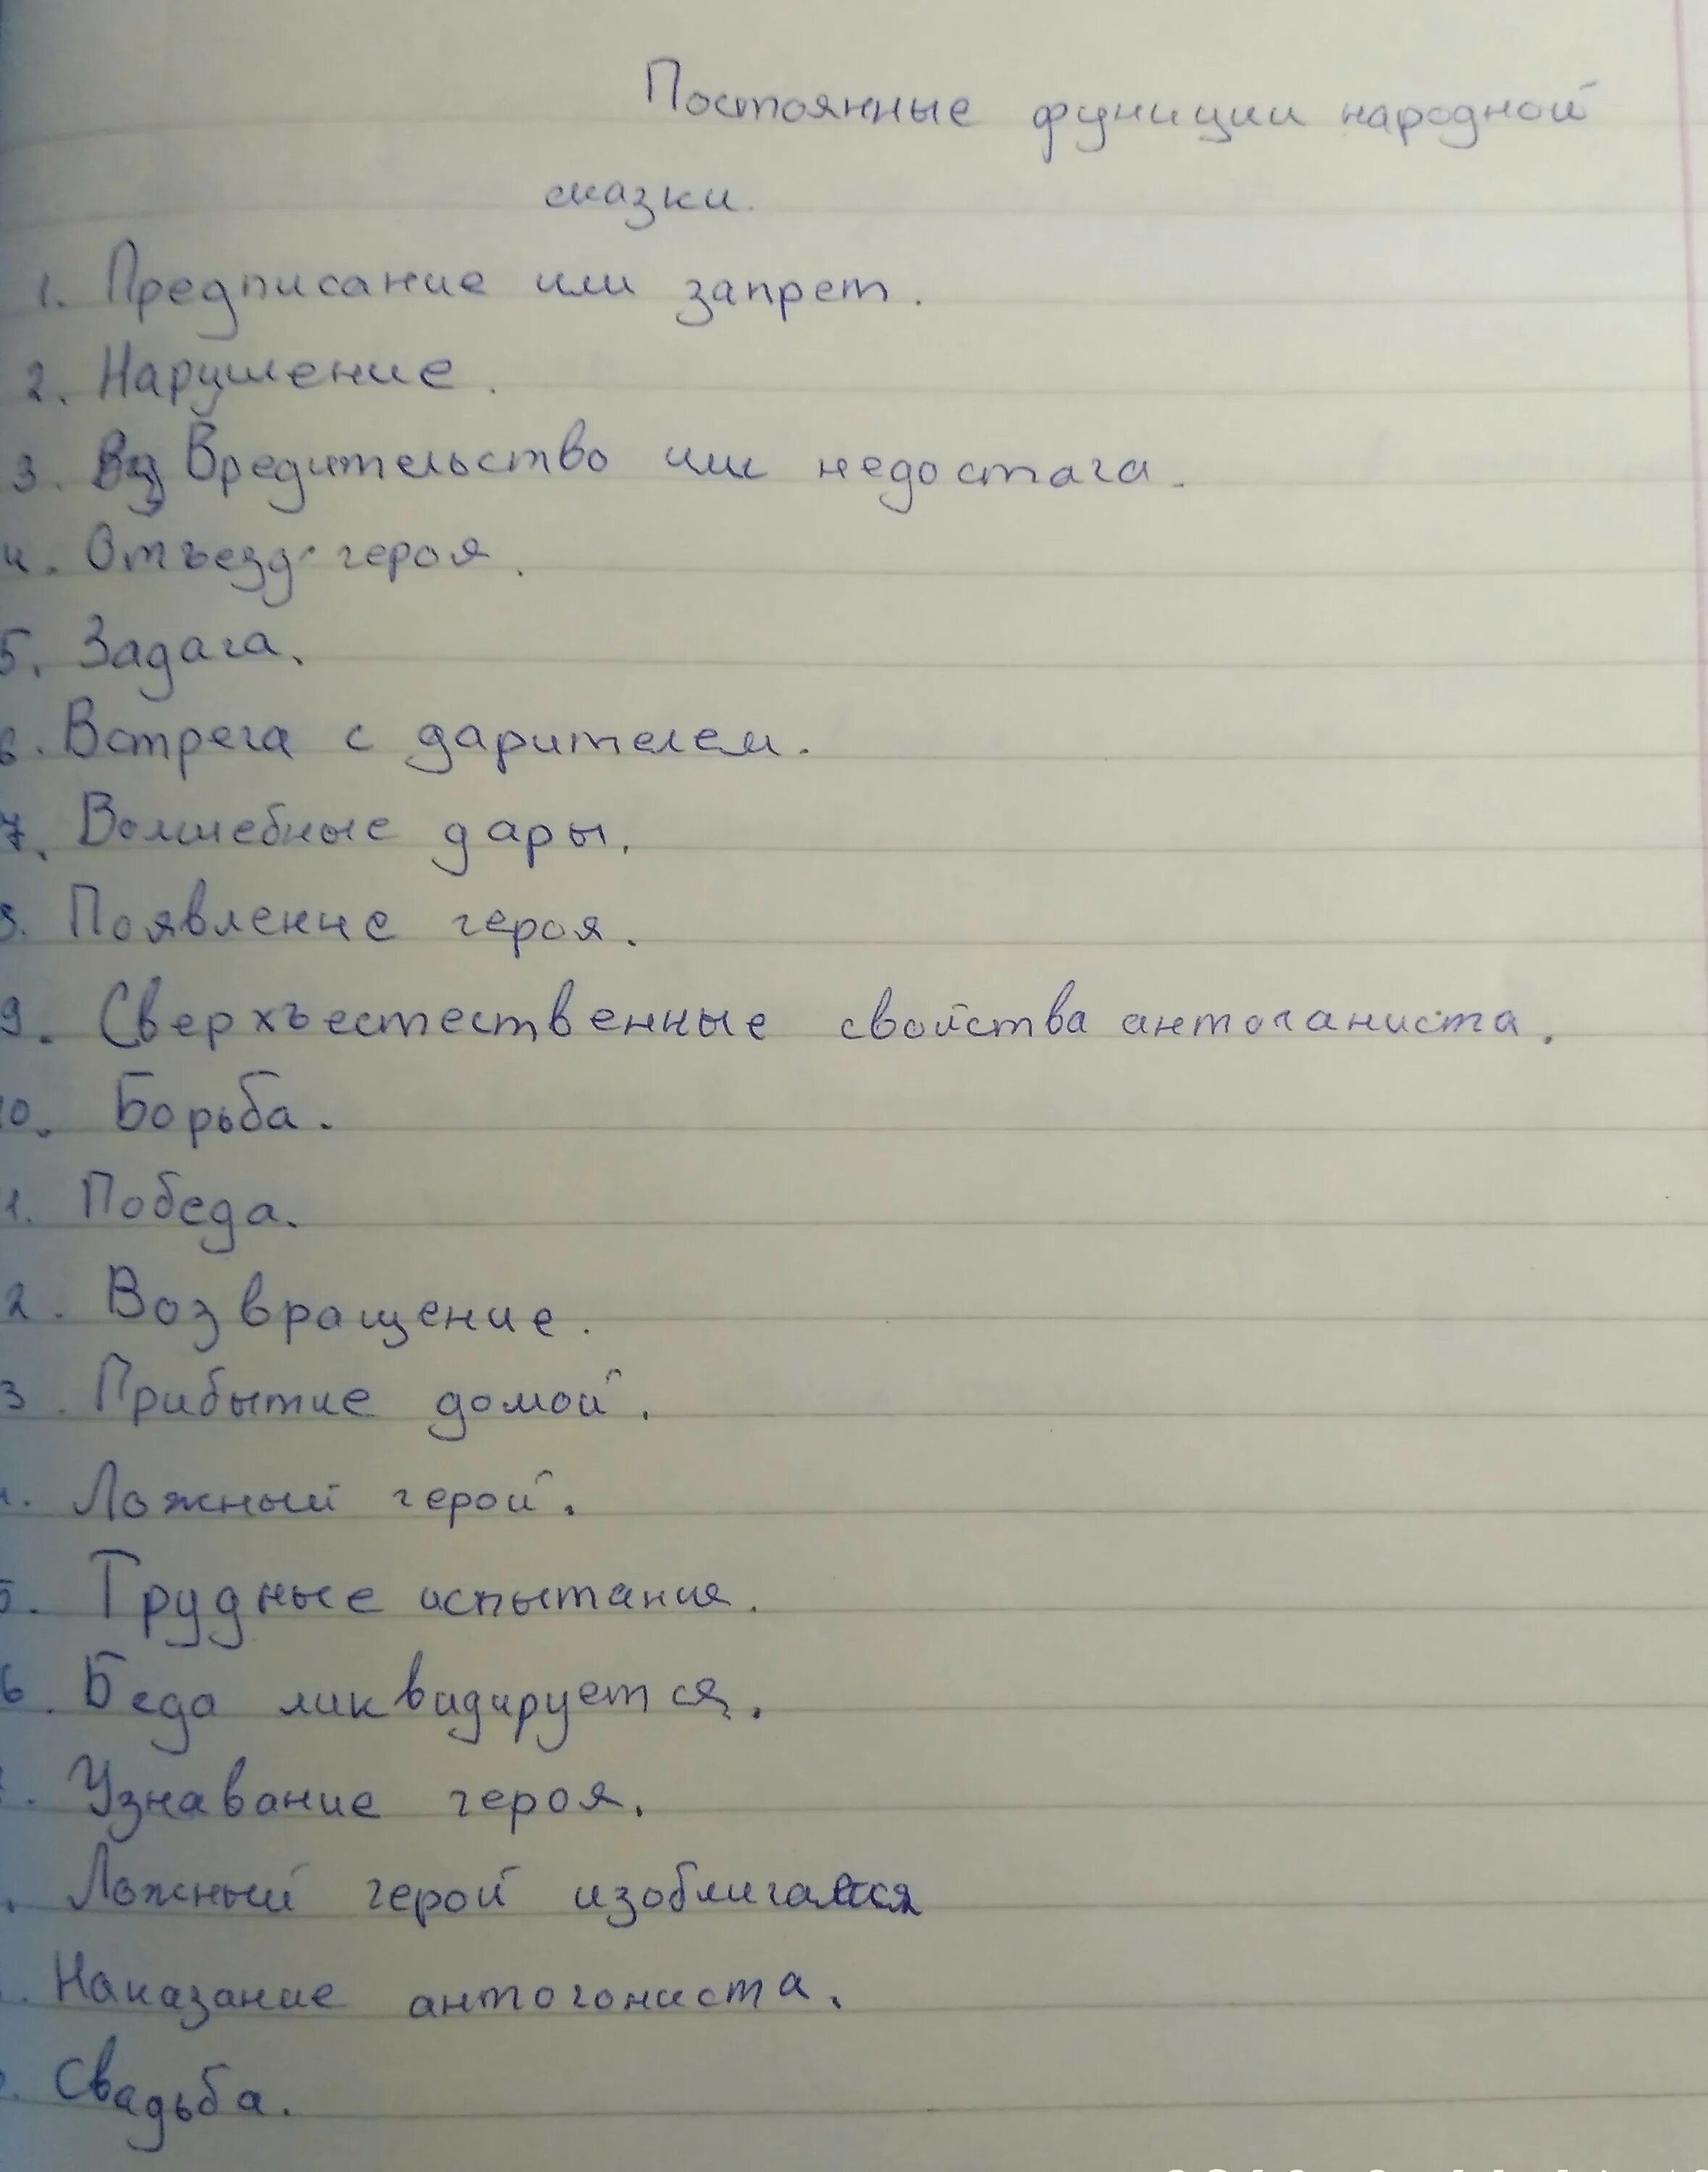 Постоянные функции народной
сказки.
1. Предписание или запрет.
2. Нарушение.
3. Вредительство или недостача.
4. Отъезд героя.
5. Задача.
6. Встреча с дарителем.
7. Волшебные дары.
8. Появление героя.
9. Сверхъестественные свойства антогониста.
10. Борьба.
1. Победа.
2. Возвращение.
3. Прибытие домой.
4. Ложный герой.
5. Трудные испытания.
6. Беда ликвидируется.
. Узнавание героя.
. Ложный герой изобличается
. Наказание антогониста.
. Свадьба.